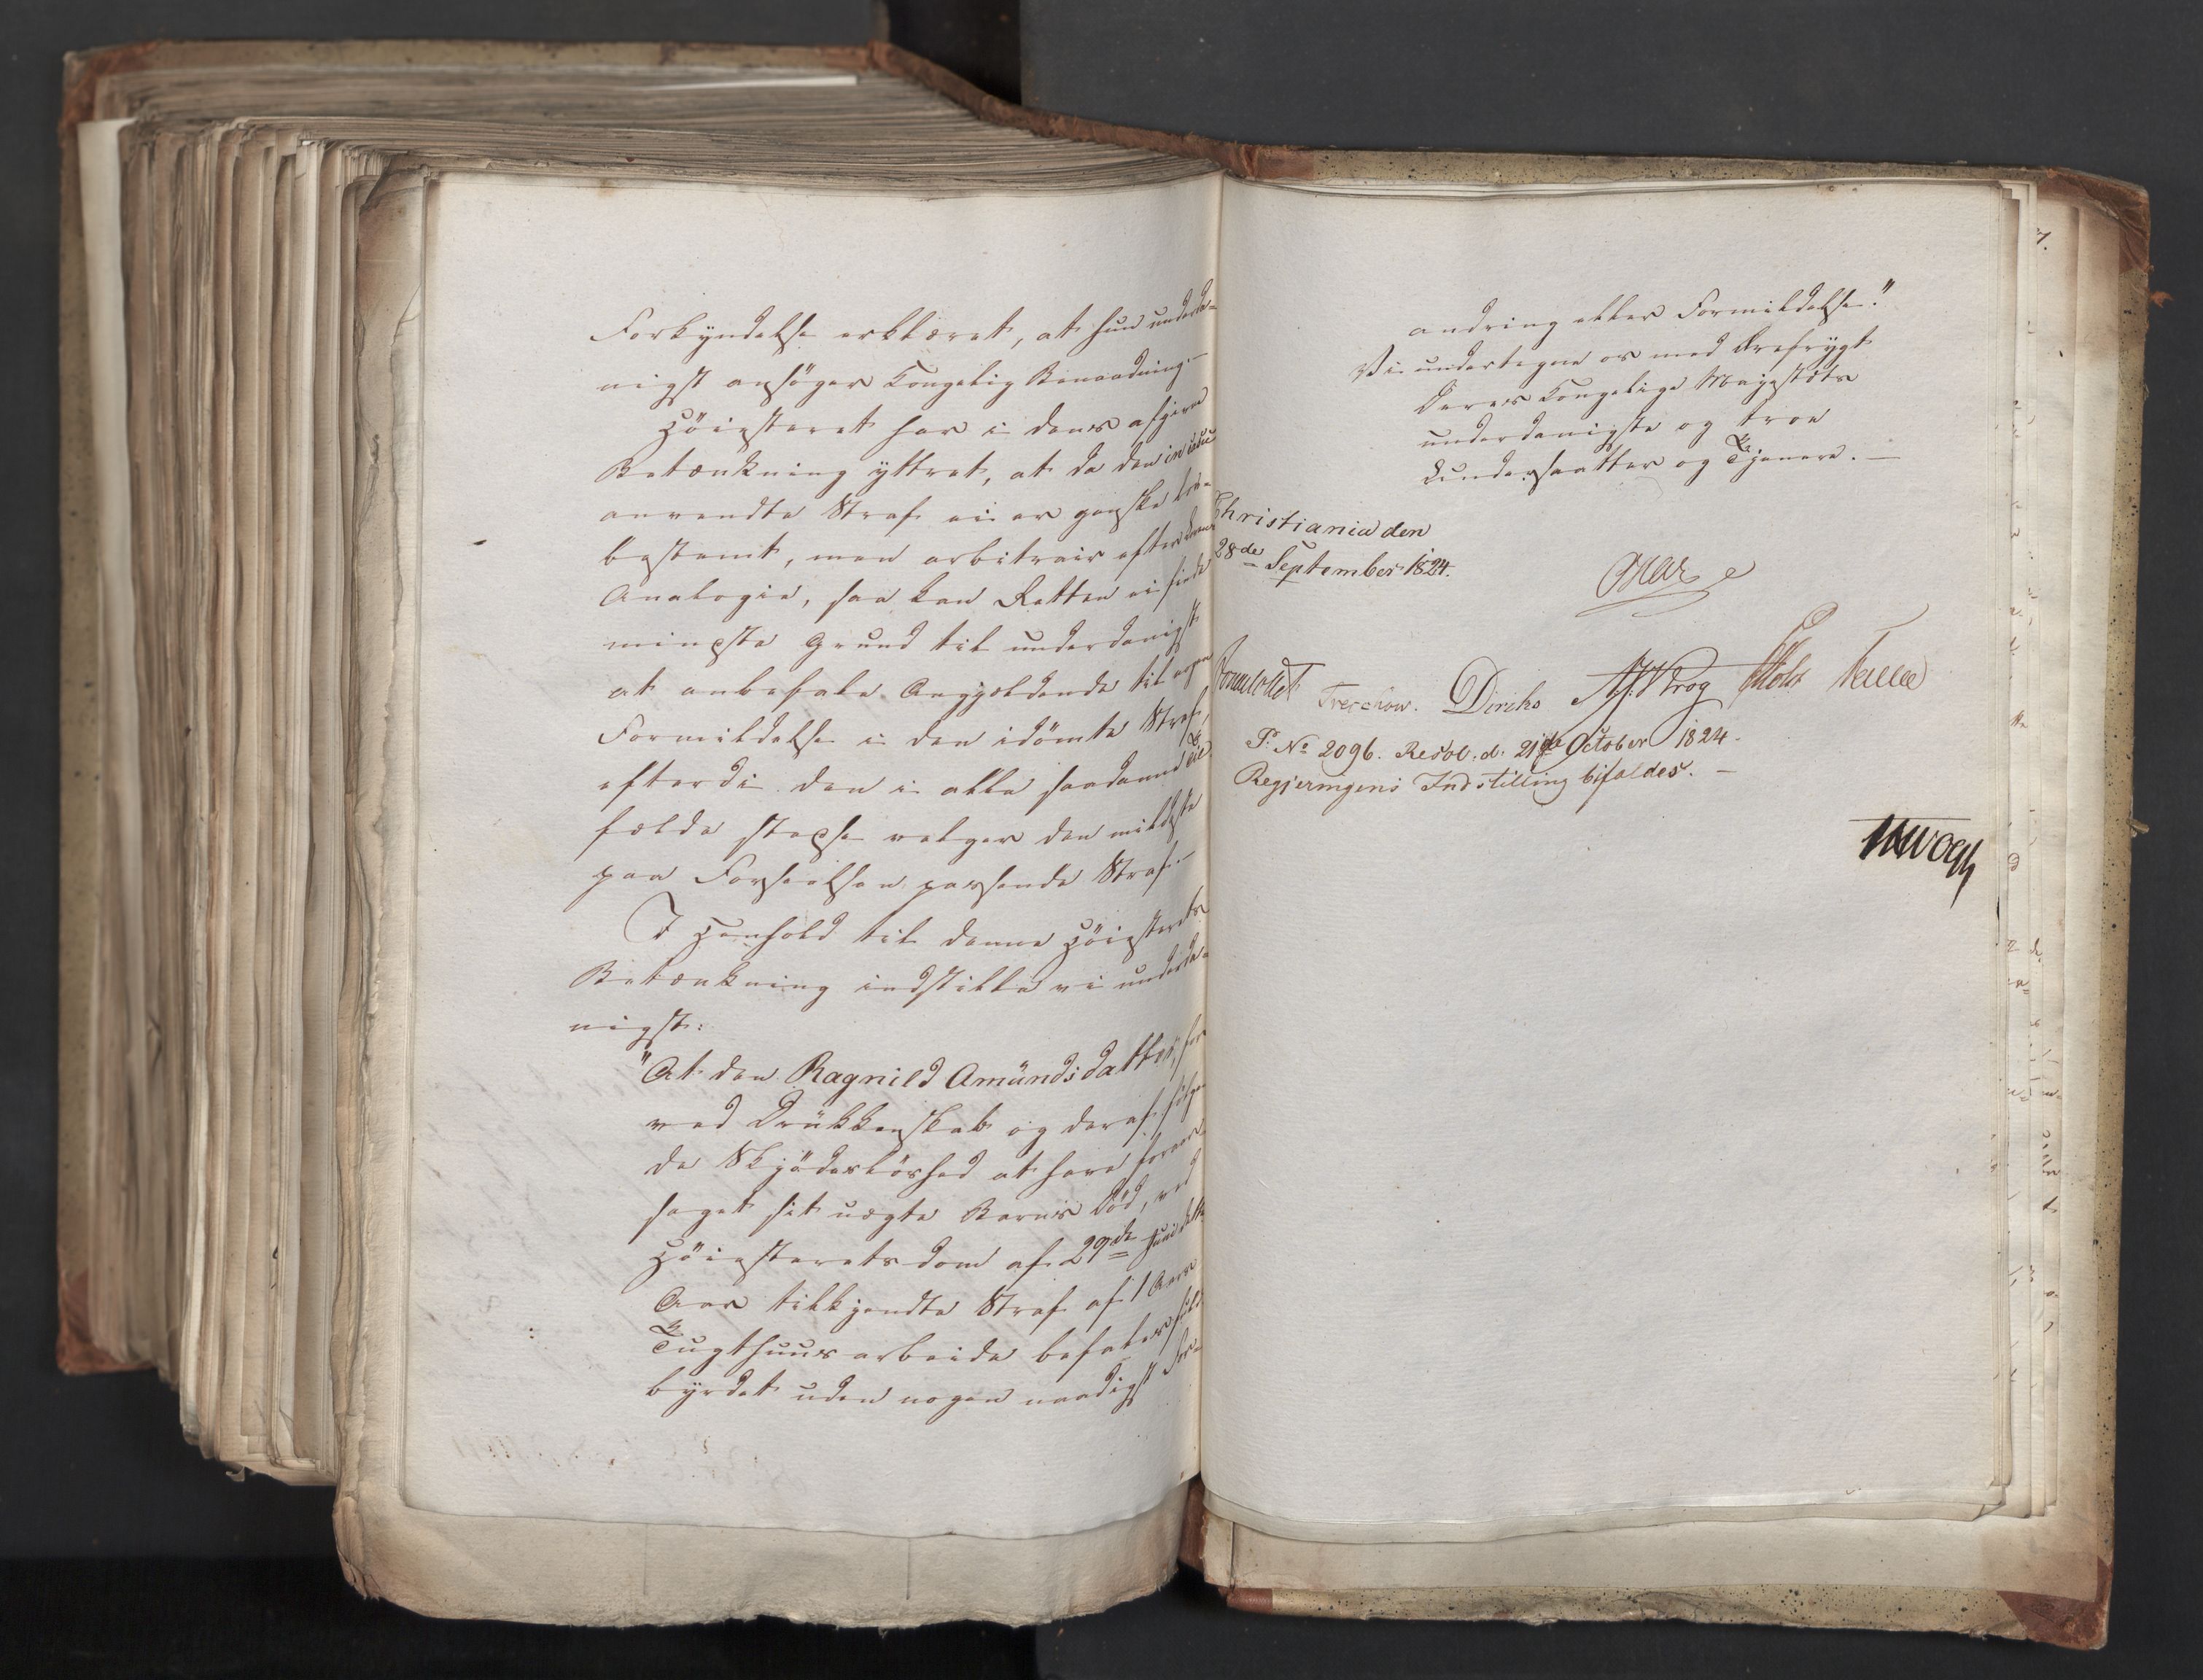 Forkyndelse erklæret, at hun underda-
nigst ansøger Kongelig Benaadning.-
Høiesteret har i dens afgivne
Betænkning yttret, at da den in casu
anvendte Straf ei er ganske lov-
bestemt, men arbitrair efter Lovens
Analogie, saa kan Retten ei finde
mindste Grund til underdanigst
at anbefale Angjeldende til nogen
Formildelse i den idømte Straf,
efterdi den i alle saadanne Til-
fælde stedse vælger den mildeste
paa Forseelsen passende Straf.-
I Henhold til denne Høiesterets
Betænkning indstille vi underda-
nigst:
"At den Ragnild Amundsdatter, for
ved Drukkenskab og deraf følgen-
de Skjødesløshed at have foraar-
saget sit uægte Barns Død, ved
Høiesteretsdom af 29de Juni dette
Aar tilkjendte Straf af 1 Aars
Tugthuusarbeide befales fuld-
byrdet uden nogen naadigst For-
andring eller Formildelse."
Vi undertegne os med Ærefrygt
Deres Kongelige Majestæts
underdanigste og troe
Undersaatter og Tjenere. -
Christiania den
28de September 1824.
Sommerfeldt Treschow. Diriks Krog Motzfeldt
P. No 2096. Resol. d. 21de October 1824.
Regjeringens Indstilling bifaldes. -
Vogt